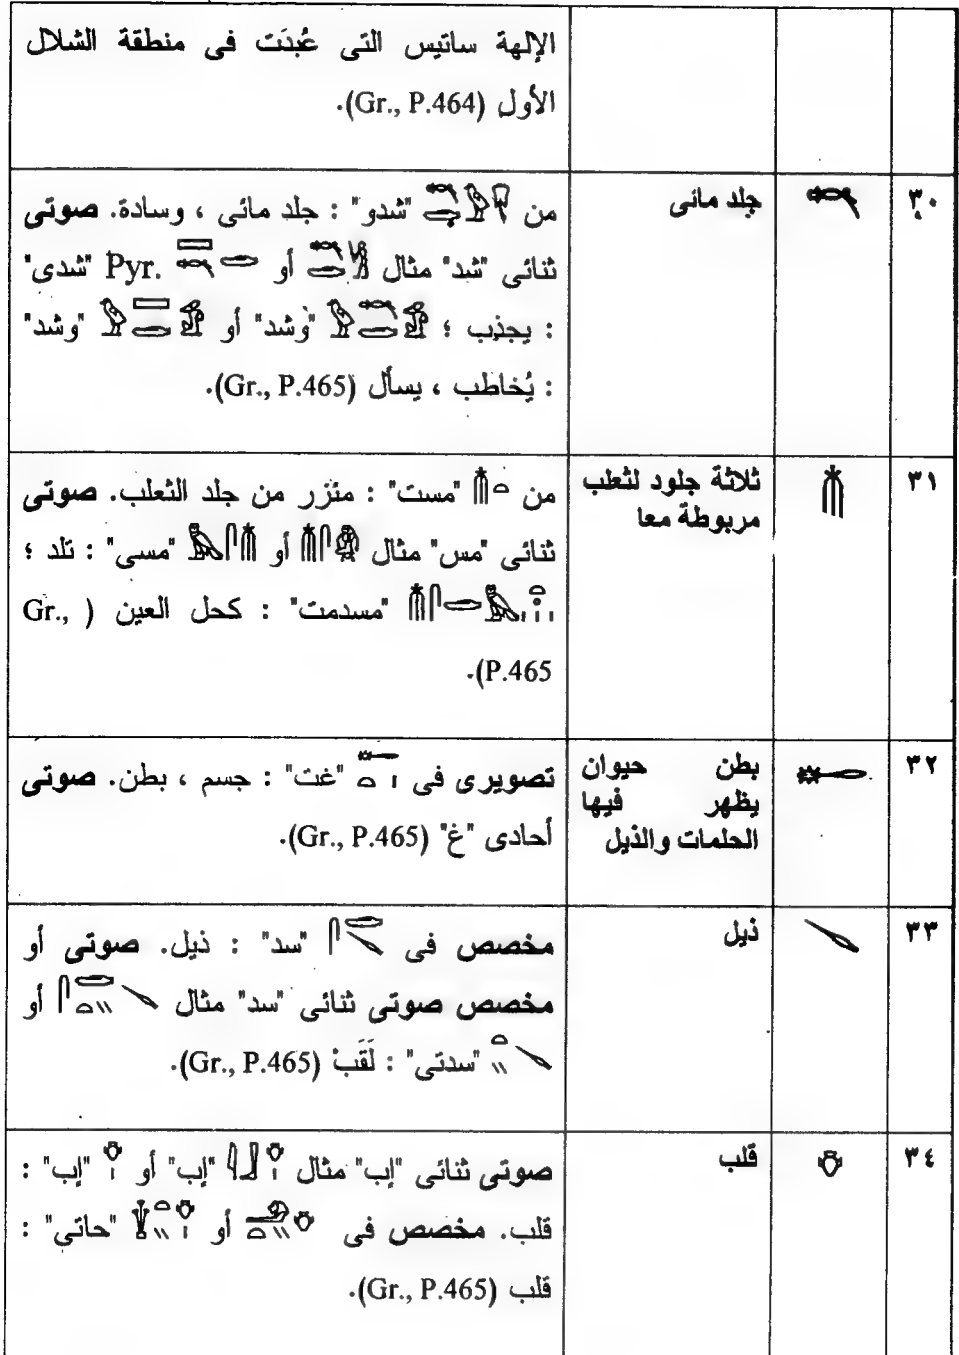 الإلهة ساتيس التى عُبدَت فى منطقة الشلال
الأول (Gr., P.464).
٣٠
جلد مائى
من "شدو" : جلد مائى ، وسادة. صوتى
ثنائى "شد" مثال أو Pyr. "شدى"
: يجذب ؛ "وشد" أو "وشد"
: يُخاطب ، يسأل (Gr., P.465).
٣١
ثلاثة جلود لثعلب
مربوطة معا
من "مست" : مئزر من جلد الثعلب. صوتى
ثنائى "مس" مثال أو "مسى" : تلد ؛
"مسدمت" : كحل العين (Gr.,
P.465).
٣٢
بطن حيوان
يظهر فيها
الحلمات والذيل
تصويرى فى "غت" : جسم ، بطن. صوتى
أحادى "غ" (Gr., P.465).
٣٣
ذيل
مخصص فى "سد" : ذيل. صوتى أو
مخصص صوتى ثنائى "سد" مثال أو
"سدتى" : لَقَبْ (Gr., P.465).
٣٤
قلب
صوتى ثنائى "إب" مثال "إب" أو "إب" :
قلب. مخصص فى أو "حاتى" :
قلب (Gr., P.465).